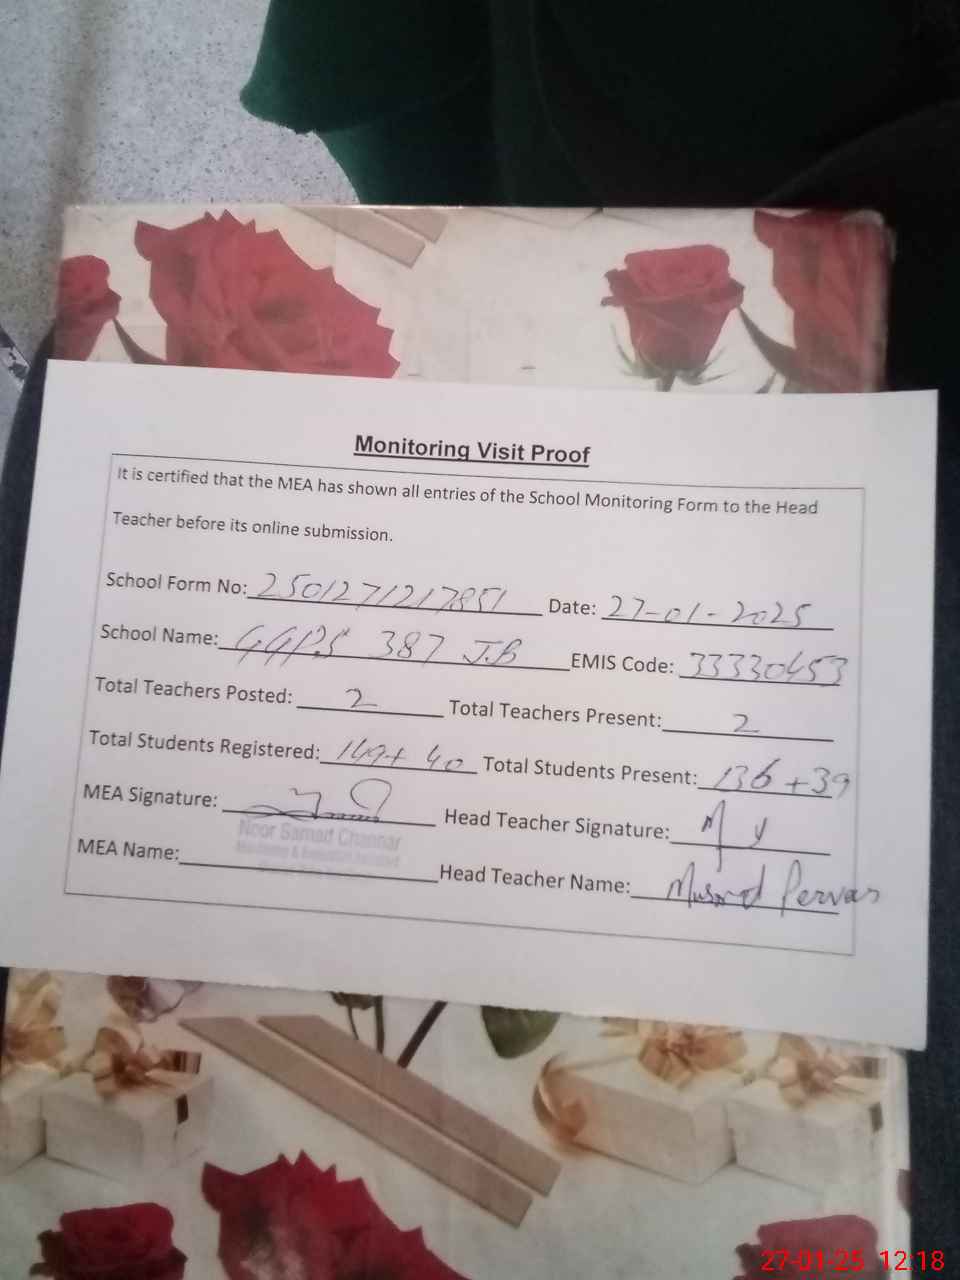 Monitoring Visit Proof
It is certified that the MEA has shown all entries of the School Monitoring Form to the Head
Teacher before its online submission.
School Form No: 2501271217851 Date: 27-01-2025
School Name: GGPS 387 JB EMIS Code: 33330453
Total Teachers Posted: 2 Total Teachers Present: 2
Total Students Registered: 149+ 40 Total Students Present: 136 +39
MEA Signature: Head Teacher Signature:
Noor Samad Channar
MEA Name: Head Teacher Name: Pervas
27-01-25 12:18